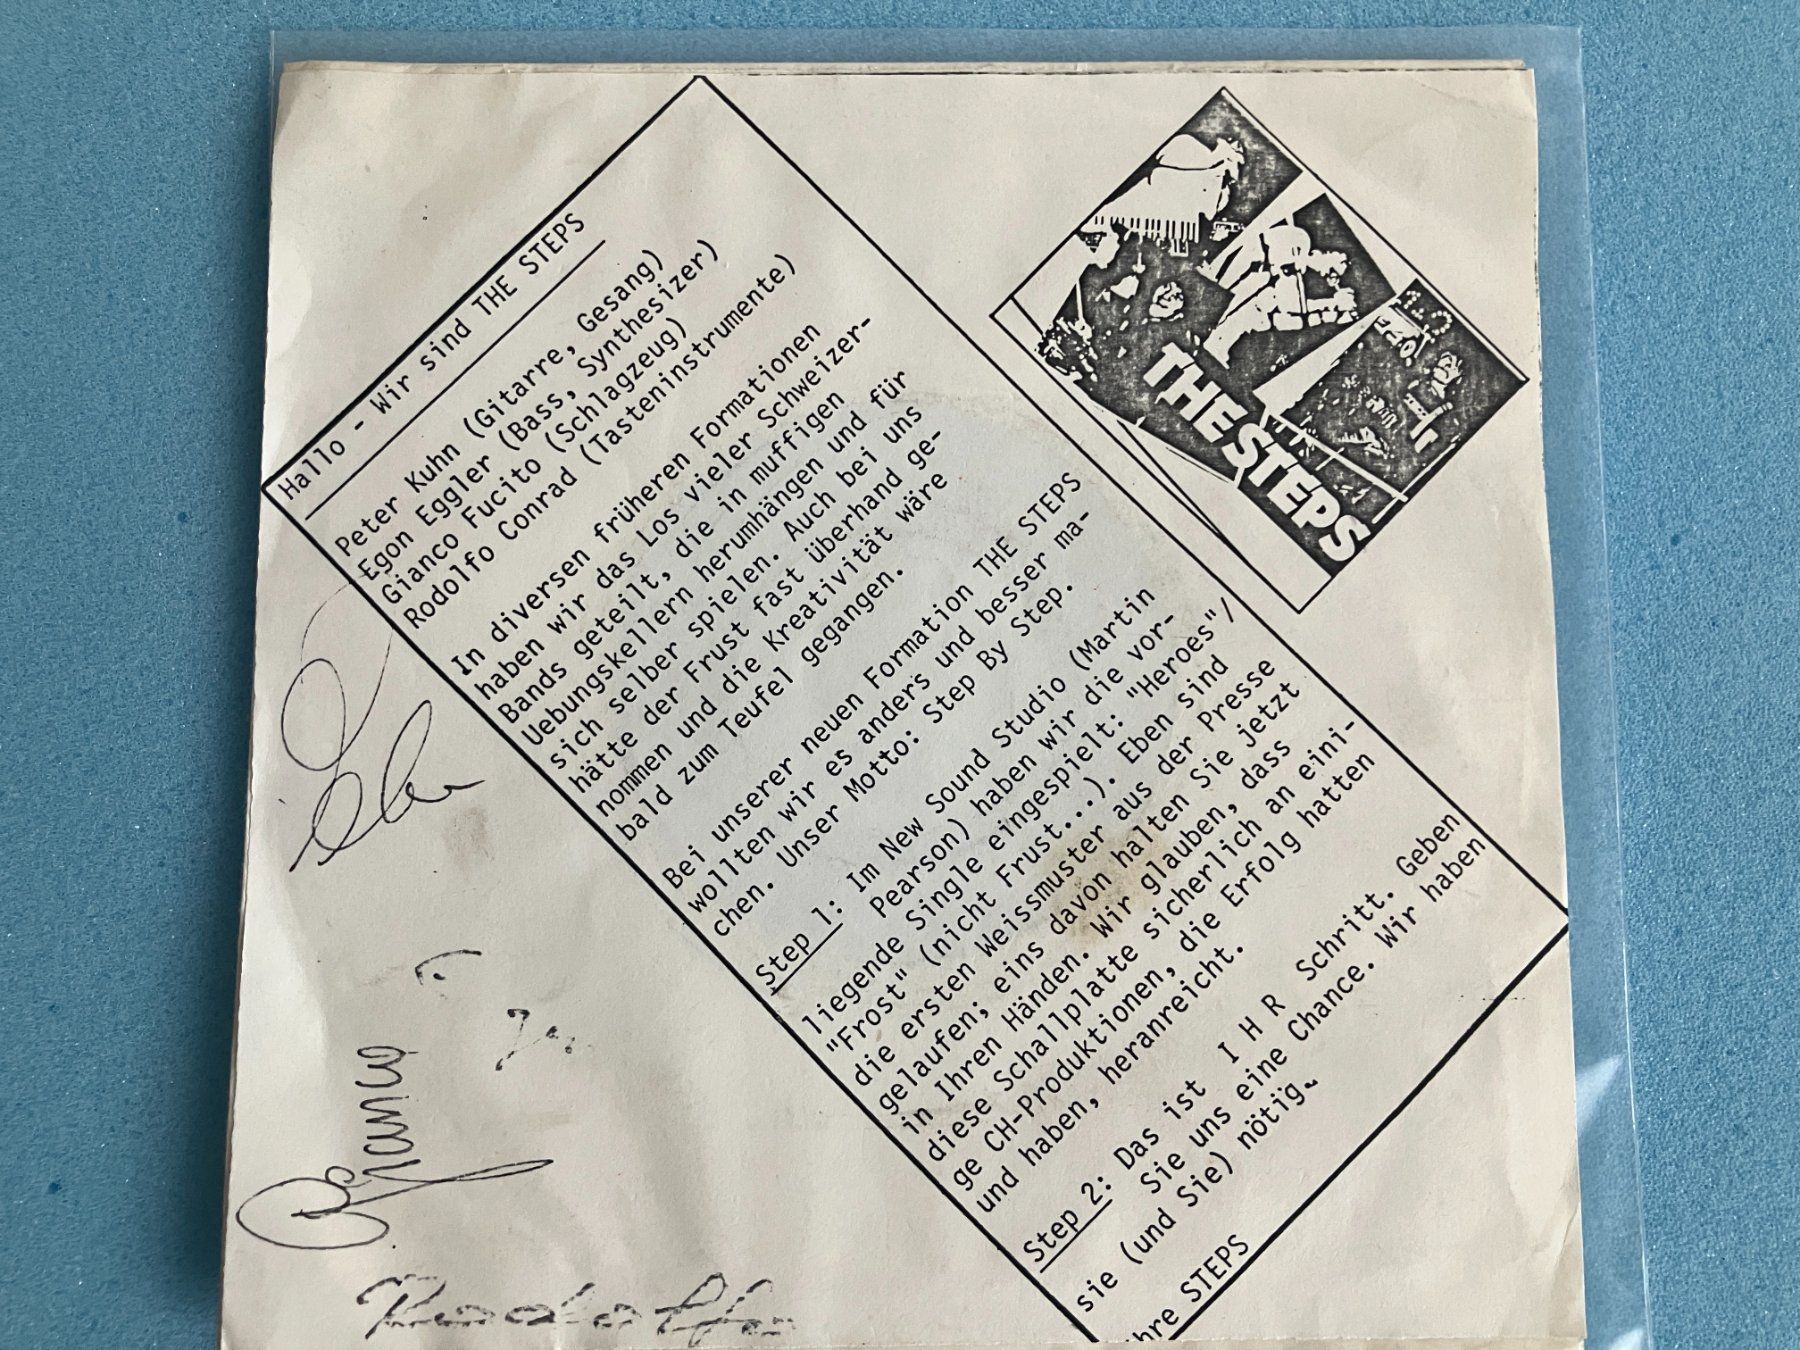 Hallo - Wir sind THE STEPS
Peter Kuhn (Gitarre, Gesang)
Egon Eggler (Bass, Synthesizer)
Gianco Fucito (Schlagzeug)
Rodolfo Conrad (Tasteninstrumente)
In diversen früheren Formationen
haben wir das Los vieler Schweizer-
Bands geteilt, die in muffigen
Uebungskellern herumhängen und für
sich selber spielen. Auch bei uns
hätte der Frust fast überhand ge-
nommen und die Kreativität wäre
bald zum Teufel gegangen.
Bei unserer neuen Formation THE STEPS
wollten wir es anders und besser ma-
chen. Unser Motto: Step By Step.
Step 1: Im New Sound Studio (Martin
Pearson) haben wir die vor-
liegende Single eingespielt: "Heroes"/
"Frost" (nicht Frust...). Eben sind
die ersten Weissmuster aus der Presse
gelaufen; eins davon halten Sie jetzt
in Ihren Händen. Wir glauben, dass
diese Schallplatte sicherlich an eini-
ge CH-Produktionen, die Erfolg hatten
und haben, heranreicht.
Step 2: Das ist I H R Schritt. Geben
Sie uns eine Chance. Wir haben
sie (und Sie) nötig.
hre STEPS
THE STEPS
Gianco
Rodolfo